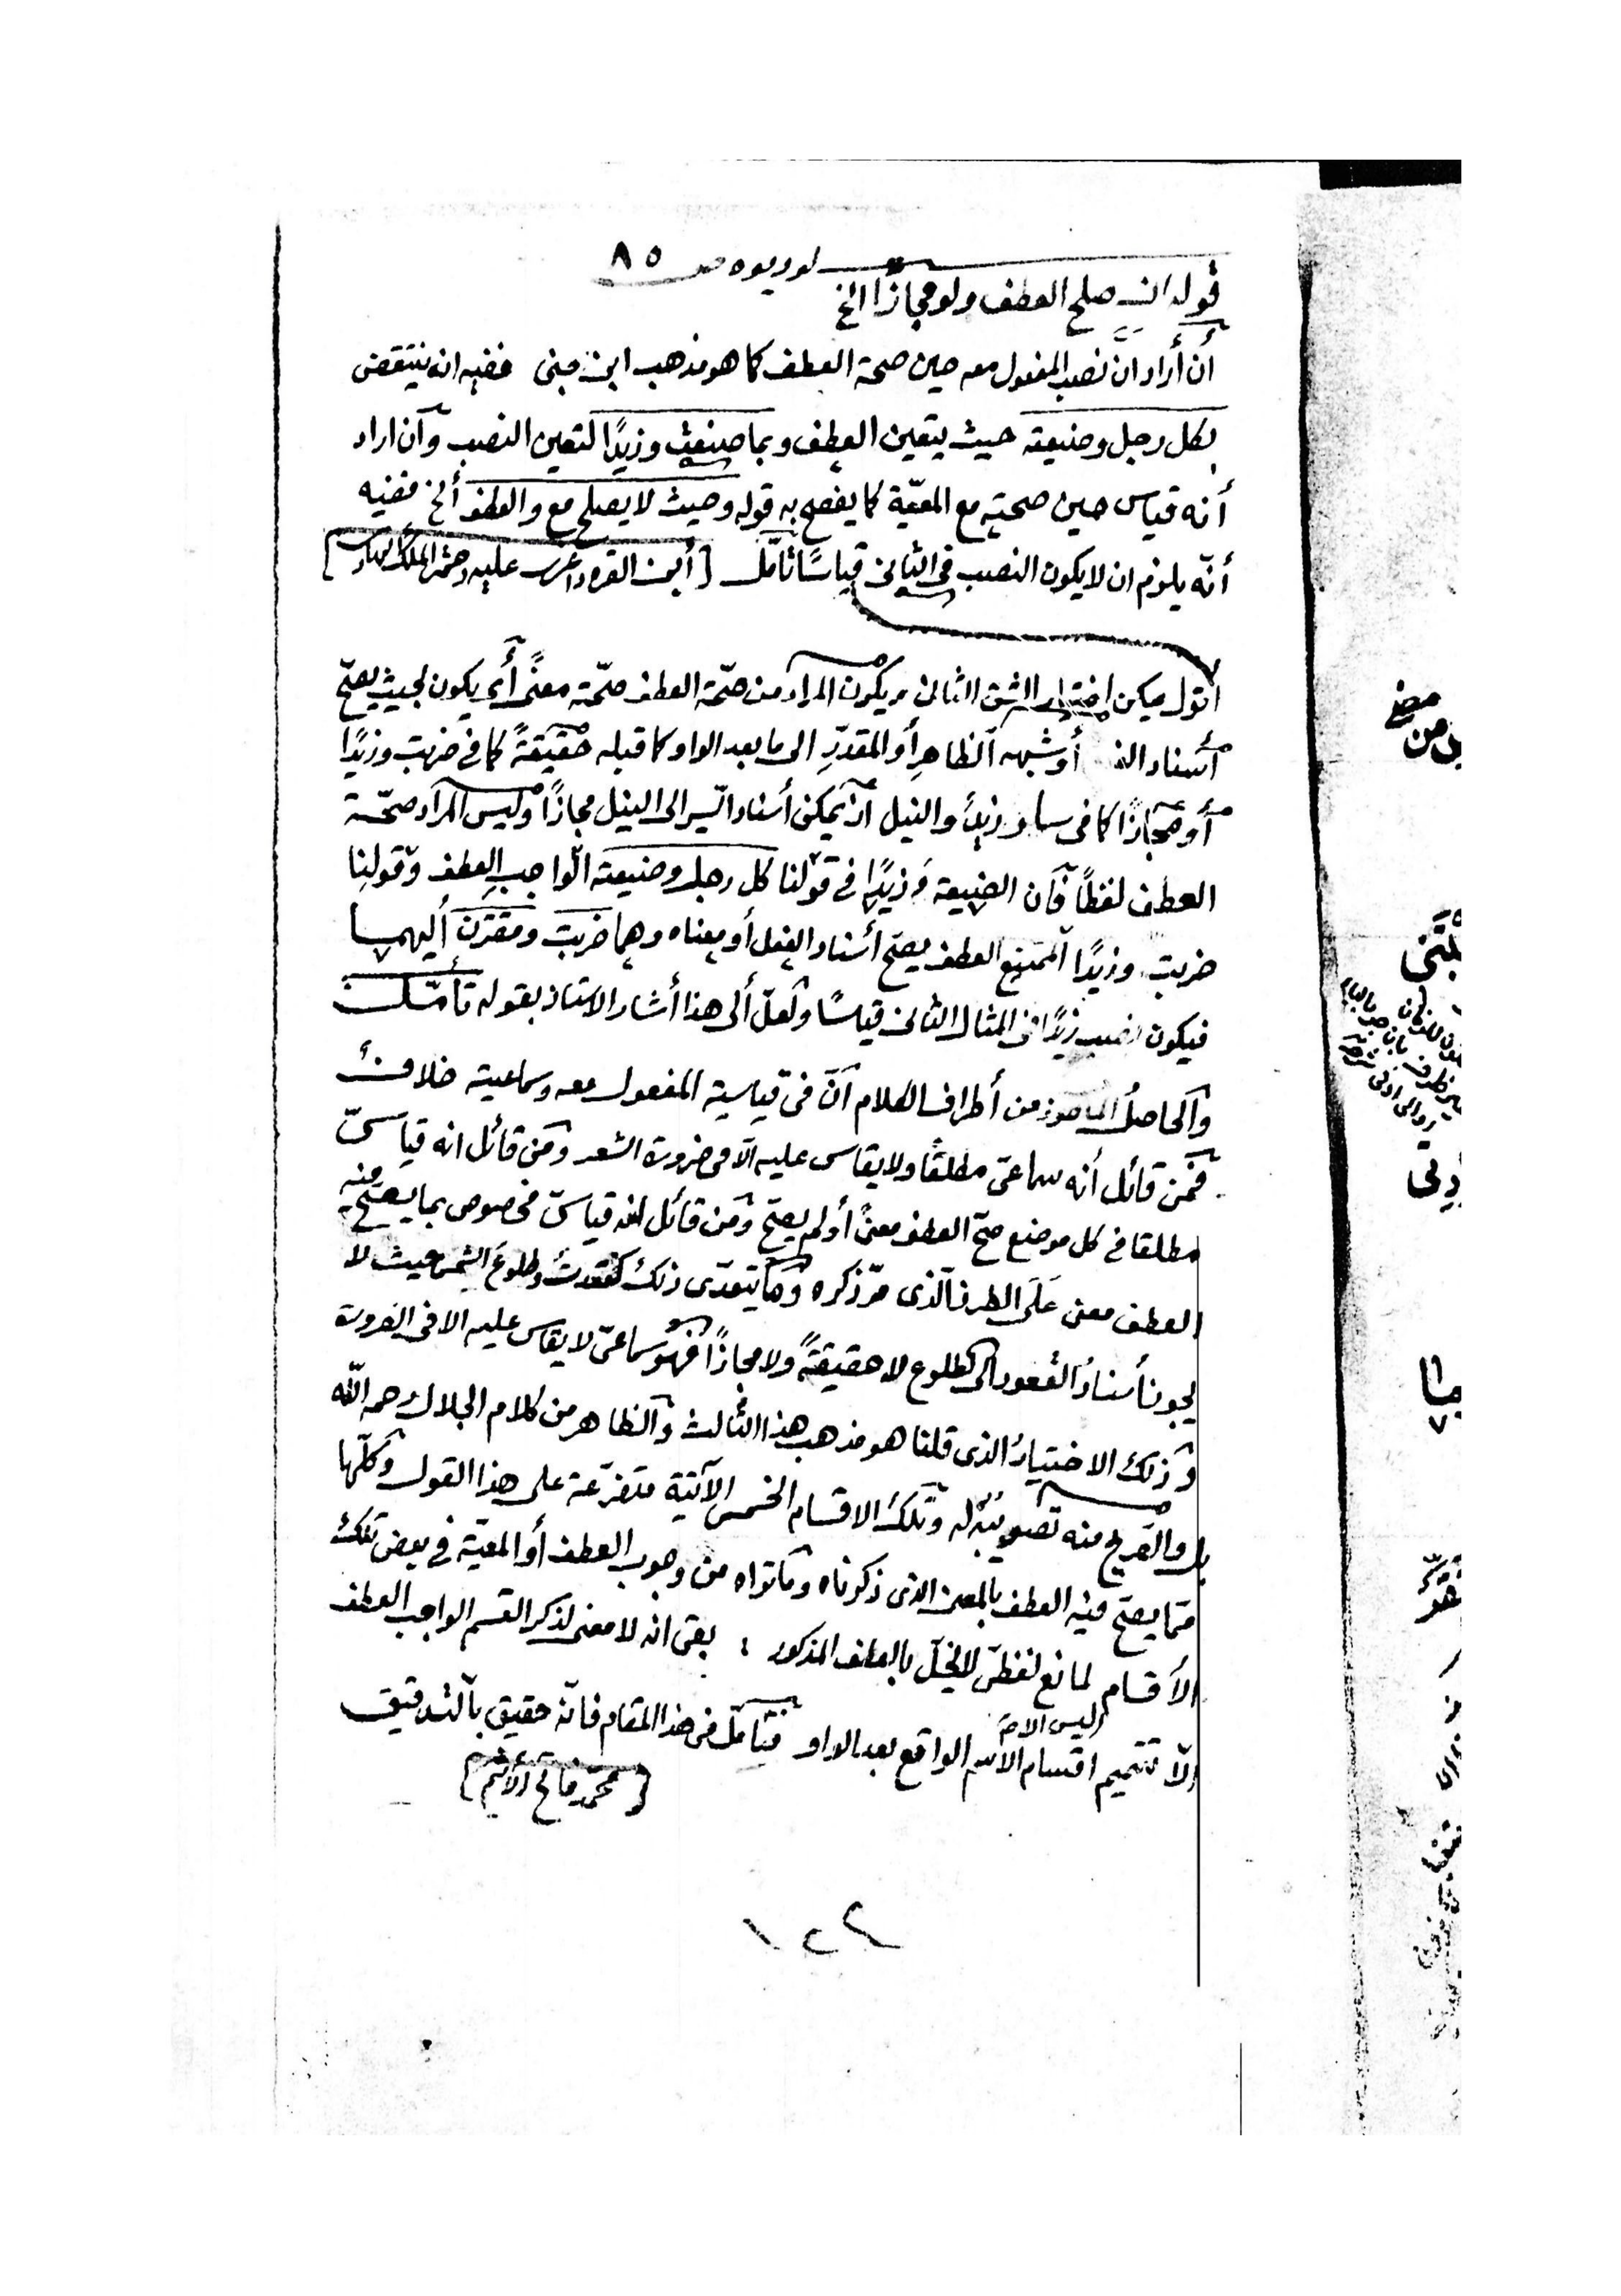 ٨٥
قوله ان صلح العطف ولو مجازًا الخ
أن أراد انّ نصب المفعول معه حين صحة العطف كما هو مذهب ابن جنى ففيه انه ينتقض
بكل رجل وضيعته حيث يتعين العطف وبما صنعت وزيدًا لتعين النصب وان اراد
أنه قياس حين صحته مع المعيّة كما يفصح به قوله وحيث لا يصلح مع والعطف ألخ ففيه
أنّه يلزم ان لا يكون النصب فى الثانى قياسًا تأمّل [ابن القره داغى عليه رحمة الملك
أقول يمكن اختيار الشق الثانى ويكون المراد من صحّة العطف صحّته معنًى أى يكون بحيث يصحّ
أسناد أو شبهه الظاهرِ أو المقدّرِ الى ما بعد الواو كما قبله حقيقةً كما فى ضربت وزيدًا
أو مجازًا كما فى سار زيدٌ والنيل اذ يمكن أسناد السّير الى النيل مجازًا وليس المراد صحّة
العطف لفظاً فأن الضيعة وزيدًا فى قولنا كل رجل وضيعته الواجب العطف وقولنا
ضربت وزيدًا الممتنع العطف يصحّ أسناد الفعل أو معناه وهما ضربت ومقترن أليهما
فيكون نصب زيدًا فى المثال الثانى قياسًا ولعلّ ألى هذا أشار الاستاذ بقوله تأمّل
والحاصلُ المأخوذ من أطراف الكلام انّ فى قياسية المفعول معه وسماعيته خلافٌ
فمن قائل أنه سماعىّ مطلقًا ولا يقاس عليه الّا فى ضرورة الشعر ومن قائل انه قياسىّ
مطلقا فى كل موضع صحّ العطف معنىً أو لم يصحّ ومن قائل انه قياسىّ مخصوص بما يصحّ فيه
العطف معنى عَلَى الطرز الّذى مرّ ذكره وما يتعدّى ذلك كقعدتُ وطلوعَ الشمس حيث لا
يجوز أسنادُ القعود الى الطلوع لا حقيقةً ولا مجازًا فهو سماعىّ لا يقاس عليه الا فى الضرورة
وذلك الاختيارُ الذى قلنا هو مذهب هذا الثالث والظاهر من كلام الجلال رحمه اللّه
بل والصّريح منه تصويبُه له وتلك الاقسام الخمس الآتية متفرّعة على هذا القول وكلّها
ممّا يصحّ فيه العطف بالمعنى الذى ذكرناه وما تراه من وجوب العطف أو المعيّة فى بعض تلك
الأقسام لمانع لفظىّ لا يخلّ بالعطف المذكور ؛ بقى انه لا معنى لذكر القسم الواجب العطف
الّا تتميم اقسام الاسم الواقع بعد الواو فتأمّل فى هذا المقام فانّه حقيق بالتدقيق